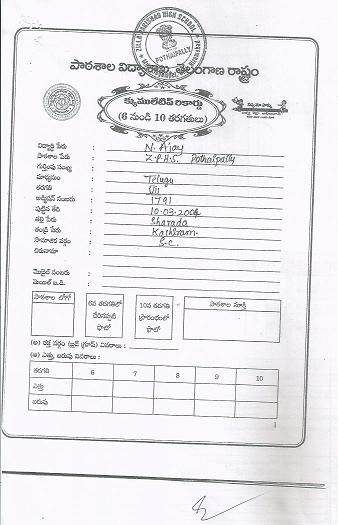 ZILLA PARISHAD HIGH SCHOOL
POTHAIPALLY
పాఠశాల విద్యాశాఖ, తెలంగాణ రాష్ట్రం
క్యుములేటివ్ రికార్డు
(6 నుండి 10 తరగతులు)
విద్యార్థి పేరు : N. Ajay
పాఠశాల పేరు : Z.P.H.S. Pothaipally
గుర్తింపు సంఖ్య :
మాధ్యమం : Telugu
తరగతి : VII
అడ్మిషన్ నంబరు : 1791
పుట్టిన తేది : 10-03-2006
తల్లి పేరు : Sharada
తండ్రి పేరు : Kathiram
సామాజిక వర్గం : S.C.
చిరునామా
మొబైల్ నంబరు :
మెయిల్ ఐ.డి. :
పాఠశాల లోగో
6వ తరగతిలో చేరినప్పటి ఫొటో
10వ తరగతి ప్రారంభంలో ఫొటో
పాఠశాల సూక్తి
(అ) రక్త వర్గం (బ్లడ్ గ్రూప్) వివరాలు :
(ఆ) ఎత్తు, బరువు వివరాలు :
తరగతి 6 7 8 9 10
ఎత్తు
బరువు
1